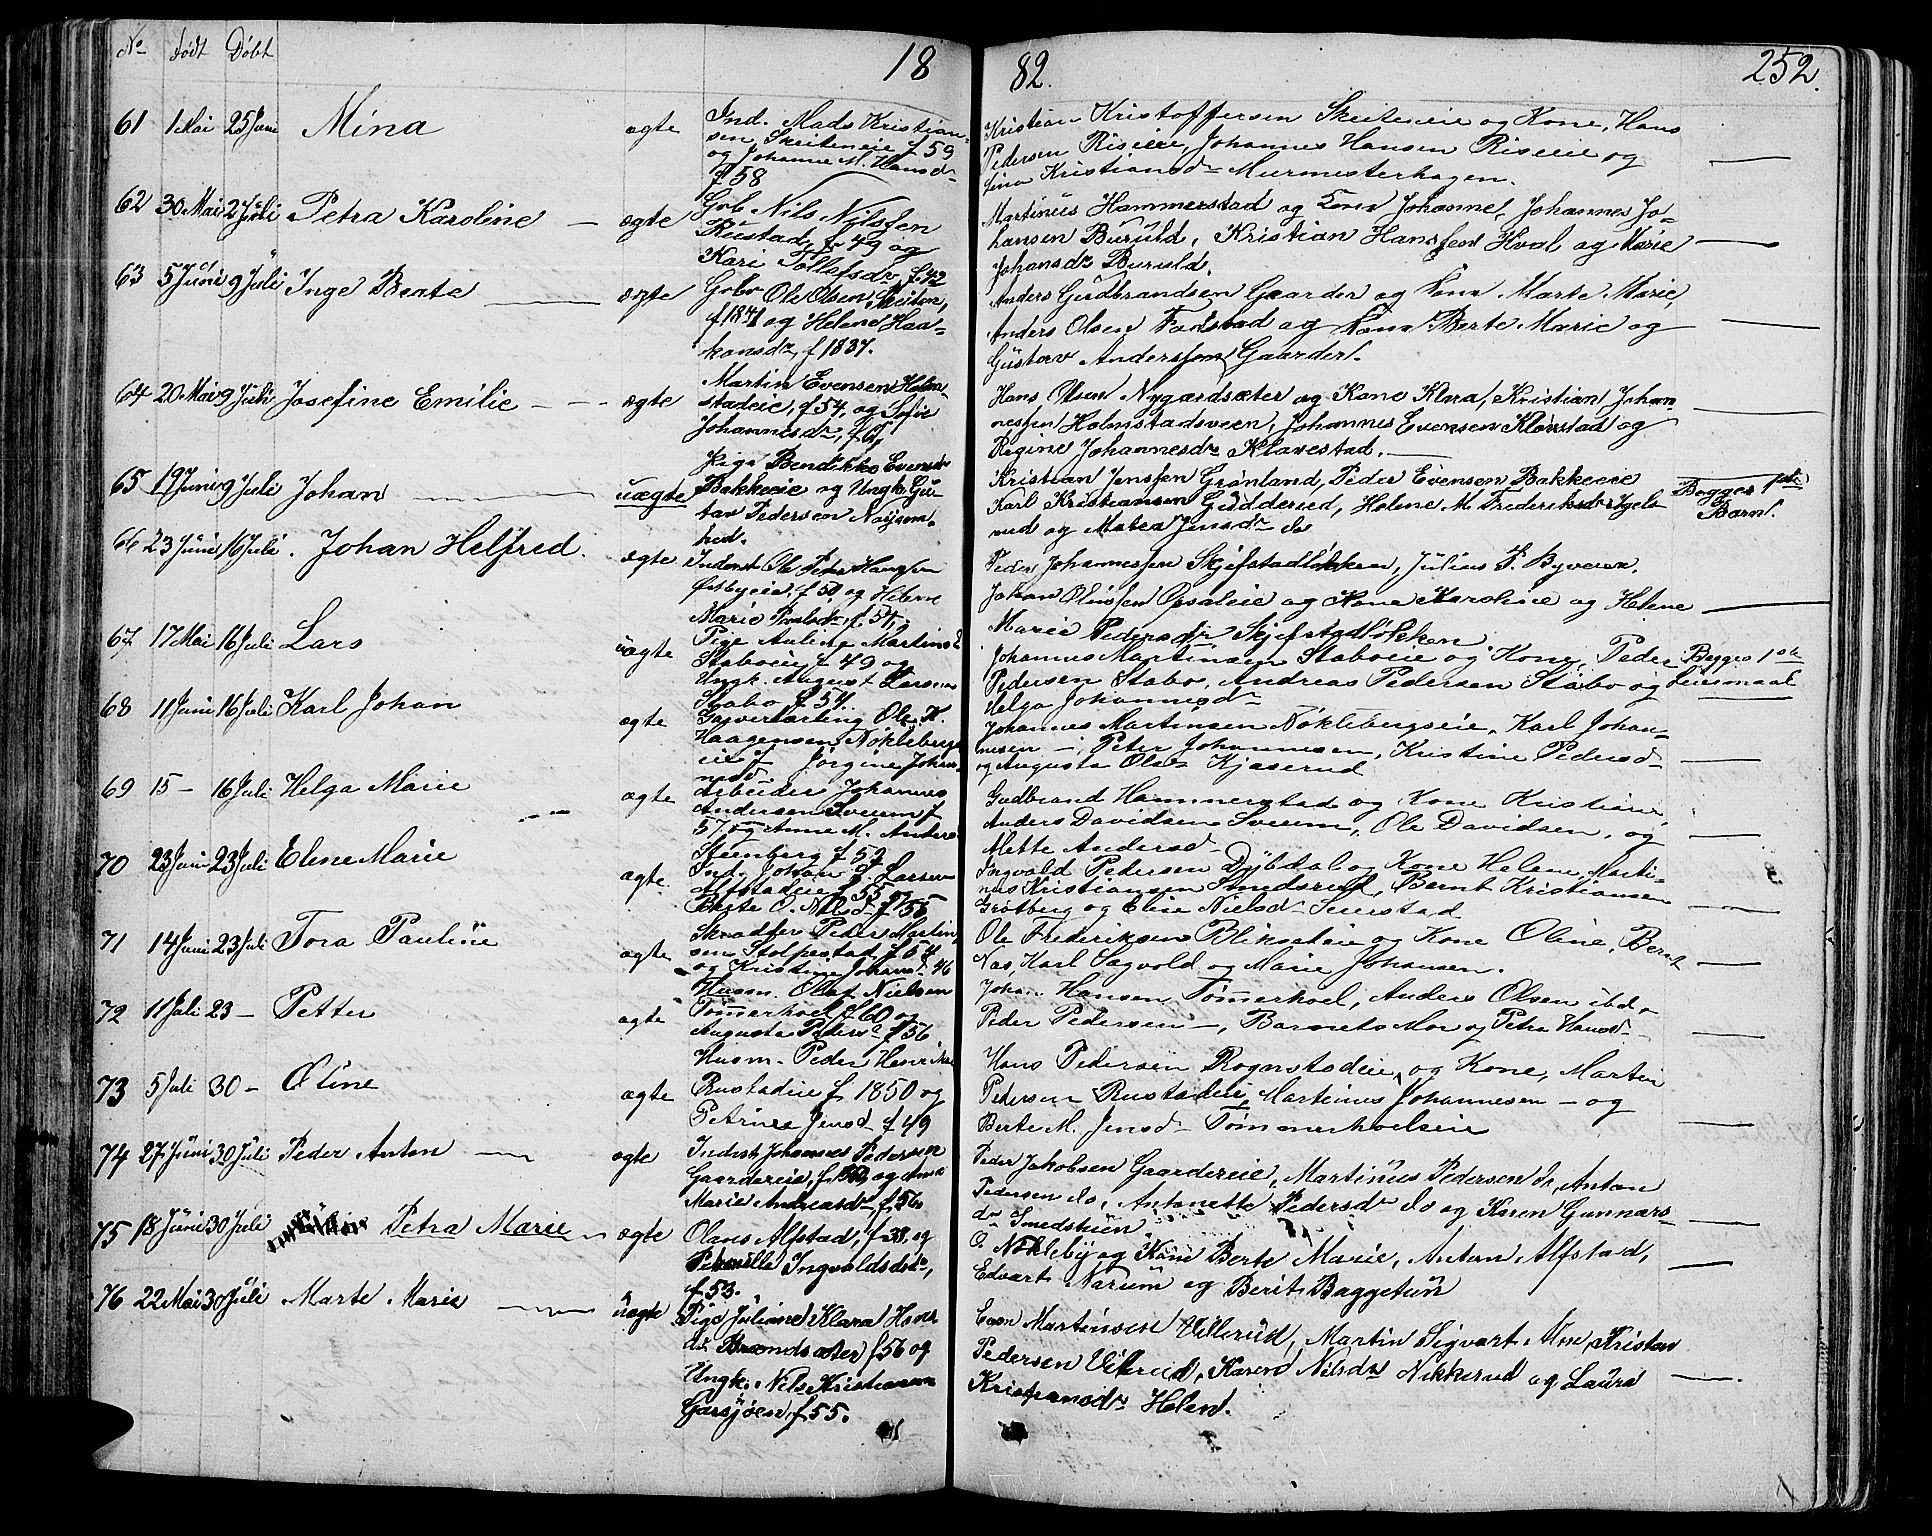 No Født Døbt 18 82. 252.
61 1 Mai 25 Juni Mina ægte Ind. Mads Kristian-
sen Skeiteneie f 59
og Johanne M. Hansd-
f 58
Kristian Kristoffersen Skeiteneie og Kone, Hans
Pedersen Riseeie, Johannes Hansen Riseeie og
Kristiansd- Murmesterhagen.
62 30 Mai 2 Juli Petra Karoline — ægte Gob. Nils Nilssen
Rustad, f. 49 og
Kari Tollefsdr, f. 42
Martinus Hammerstad og Kone Johanne, Johannes Jo-
hansen Buruld, Kristian Hanssen Hval og Marie —
Johansdr Buruld.
63 5 Juni 9 Juli Inge Beate — ægte Gobr Ole Olsen, Skiton,
f 1841 og Helene Haa-
konsdr, f 1837.
Anders Gudbrandsen Gaarder og Kone Marte Marie,
Anders Olsen Fadstad og Kone Berte Marie og —
Gustav Anderssen Gaarder.
64 20 Mai 9 Juli Josefine Emilie — ægte Martin Evensen Holm-
stadeie, f 54, og Sofie
Johannesdr, f.
Hans Olsen Nygardsæter og Kone Klara, Kristian Johan-
nessen Holmstadsveen, Johannes Evensen Klavestad og —
Regine Johannesdr Klavestad. —
65 19 Juni 9 Juli Johan — uægte Pige Bendikke Evensdr
Bakkeeie og Ungk. Gu-
stav Pedersen Noysom-
hed.
Kristian Jenssen Grønland, Peder Evensen Bakkeeie
Karl Kristiansen Gudderud, Helene M. Frederiksdr Igels-
rud og Matea Jensdr do
Begges 1ste
Barn.
66 23 Juni 16 Juli. Johan Helfred. ægte Inderst Ole Peter Hansen
Østbyeie, f. 50, og Helene
Marie Paulsdr f. 54,
Peder Johannessen Skjefstadløkken, Julius P. Byveien,
Johan Olussen Opsaleie og Kone Karoline og Helene —
Marie Pedersdr Skjefstadløkken
67 17 Mai 16 Juli Lars uægte Pige Auline Martinsd
Staboeie f 49 og
Ungk. August Larsen
Stabo f 54.
Johannes Martinsen Staboeie og Kone, Peder
Pedersen Stabo, Andreas Pedersen Stabo og
Helga Johannesd-
Begges 1ste
Leiermaal
68 11 Juni 16 Juli Karl Johan ægte Garverlærling Ole K.
Haagensen Nøklebergs-
eie og Jorgine Johan-
nesd.
Johannes Martinsen Nøklebergseie, Karl Johan-
nesen —, Peter Johannesen, Kristine Pedersd-
og Augusta Olsen Kjøserud —
69 15 — 16 Juli Helga Marie — ægte Arbeider Johannes
Andersen Sveum f
57 og Anne M. Anders-
Steenberg f 57
Gudbrand Hammerstad og Kone Kristiane,
Anders Davidsen Sveum, Ole Davidsen, og —
Mette Andersd-
70 23 Juni 23 Juli Elene Marie ægte Ind. Johan P. Larsen
Alfstadeie f 55 og
Berte O. Nilsd- f 55
Ingvald Pedersen Dybdal og Kone Helene, Marti-
nus Kristiansen Smedsrud, Bernt Kristiansen
Grøtberg og Elise Nielsd- Seierstad —
71 14 Juni 23 Juli Tora Pauline ægte Skrædder Peder Martin-
sen Stolpestad f 54
og Kristine Johansd. 46
Ole Frederiksen Blikseteie og Kone Oline, Bernt
Næs, Karl Sagvold og Marie Johansen. —
72 11 Juli 23 — Petter ægte Husm. Olaf Nielsen
Tømmerhoel f 60 og
Augusta Pedersd f 56
Johan Hansen Tømmerhoel, Anders Olsen ibd.,
Peder Pedersen —, Barnets Mor og Petra Hansd- —
73 5 Juli 30 — Oline ægte Husm. Peder Henriksen
Rustadeie f 1850 og
Petrine Jensd f 49
Hans Pedersen Rognstadeie og Kone, Martin
Pedersen Rustadeie, Martinus Johannesen — og
Berte M. Jensd- Tømmerhoelseie —
74 27 Juni 30 Juli Peder Anton — ægte Inderst Johannes Pedersen
Gaardereie, f. og Anne
Marie Andreasd- f. 56.
Peder Jakobsen Gaardereie, Martinus Pedersen do, Anton
Pedersen do, Antonette Pedersdr do og Karen Gunnars-
dr Smedstuen.
75 18 Juni 30 Juli Petra Marie — ægte Olaus Alfstad, f. 38, og
Pernille Ingvoldsdr,
f 53.
O. Nøkleby og Kone Berte Marie, Anton Alfstad,
Edvart Narum og Berit Baggetun —
76 22 Mai 30 Juli Marte Marie — uægte Pige Juliane Klara Hans-
dr Brendsæter f 56 og
Ungk. Nils Kristiansen
Garsjøen, f. 55.
Even Martinsen Villerud, Martin Sigvart Kristian
Pedersen Vilerud, Karen Nilsdr Nikkerud og Laura —
Kristiansdr Helen.